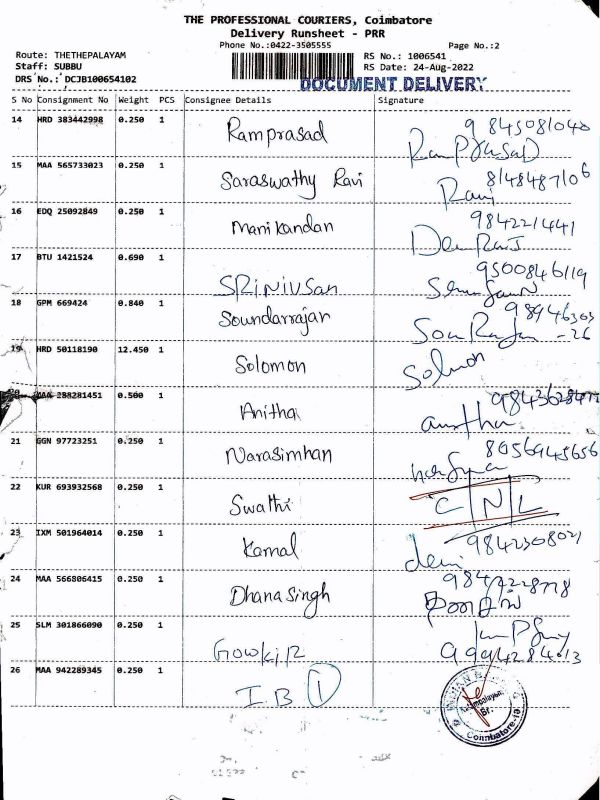 THE PROFESSIONAL COURIERS, Coimbatore
Delivery Runsheet - PRR
Phone No.:0422-3505555 Page No.:2
Route: THETHEPALAYAM RS No.: 1006541
Staff: SUBBU RS Date: 24-Aug-2022
DRS No.: DCJB100654102 DOCUMENT DELIVERY
S No Consignment No Weight PCS Consignee Details Signature
14 HRD 383442998 0.250 1 Ramprasad 9845081040
RamPrasad
15 MAA 565733023 0.250 1 Saraswathy Ravi 8148487106
Ravi
16 EDQ 25092849 0.250 1 Manikandan 9842221441
17 BTU 1421524 0.690 1 SRiNiVSan 9500846119
18 GPM 669424 0.840 1 Soundarrajan 98946303
-26
19 HRD 50118190 12.450 1 Solomon Solmon
20 MAA 288281451 0.500 1 Anitha
21 GGN 97723251 0.250 1 Narasimhan 8056945656
22 KUR 693932568 0.250 1 Swathi C N L
23 IXM 501964014 0.250 1 Kamal 9842308021
24 MAA 566806415 0.250 1 Dhana Singh
25 SLM 301866090 0.250 1 GowkiR
26 MAA 942289345 0.250 1 I.B 1
Coimbatore-19